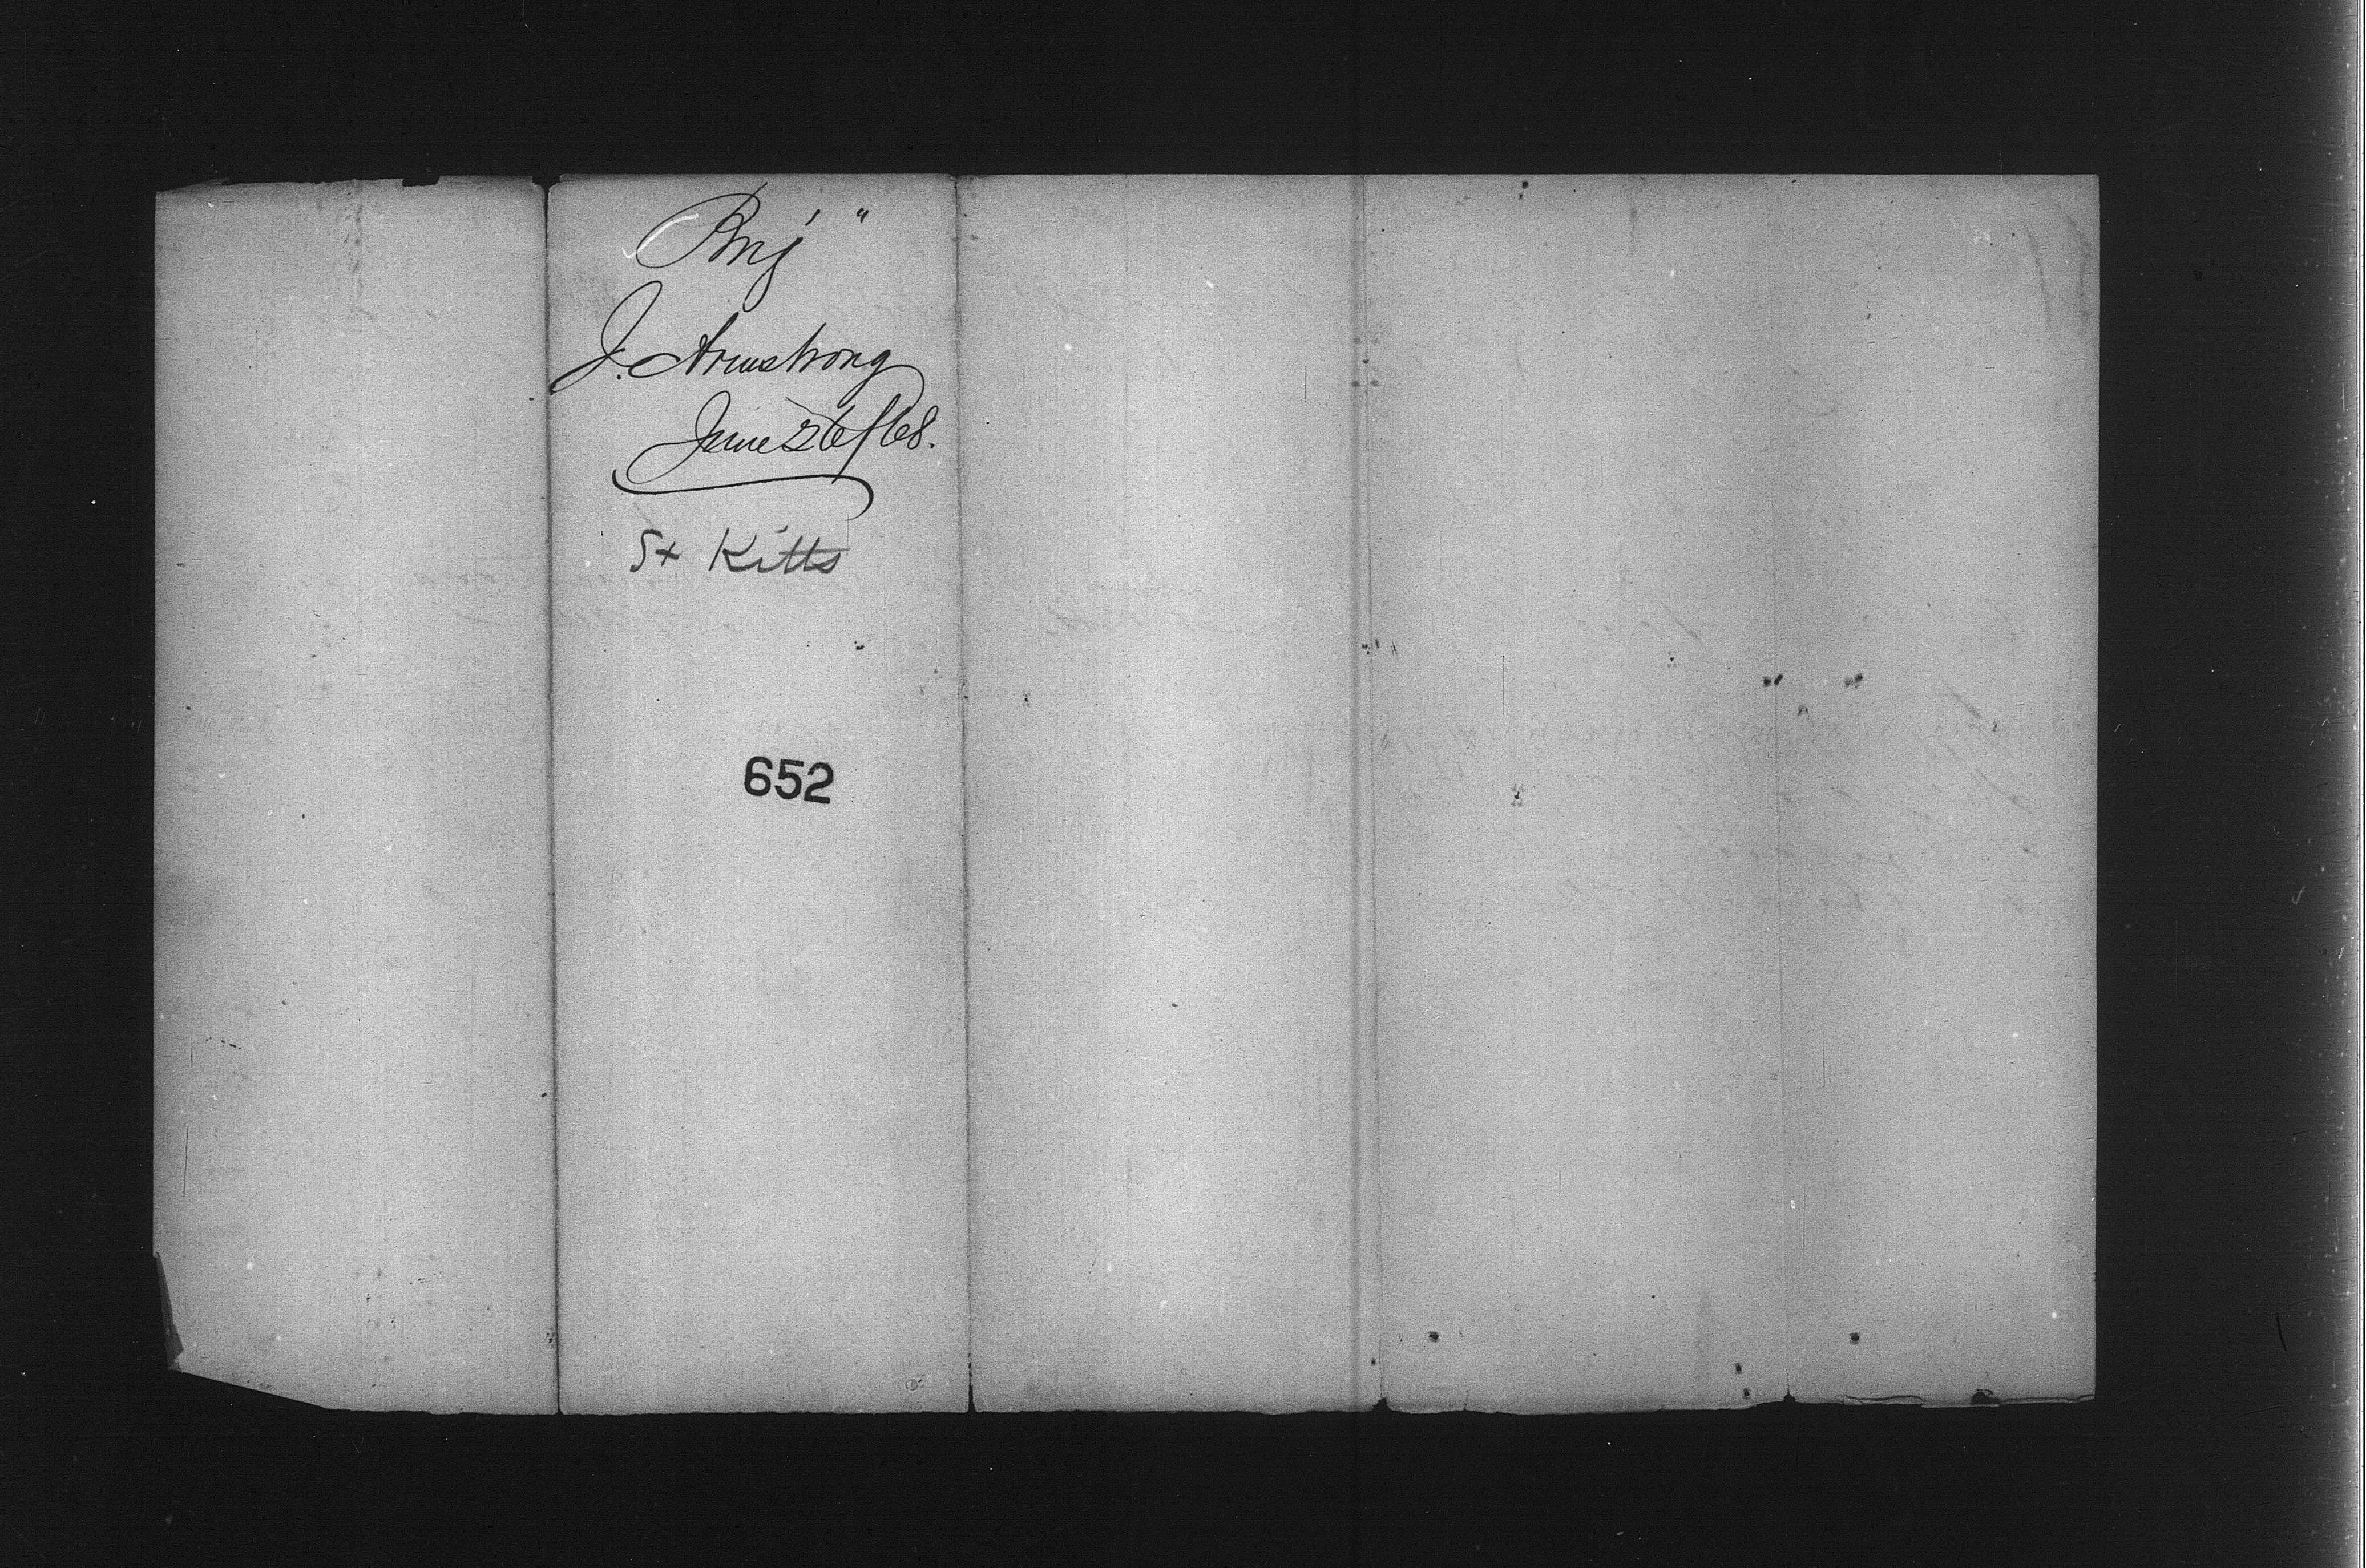 J. Armstrong
June 26/68.
St Kitts
652